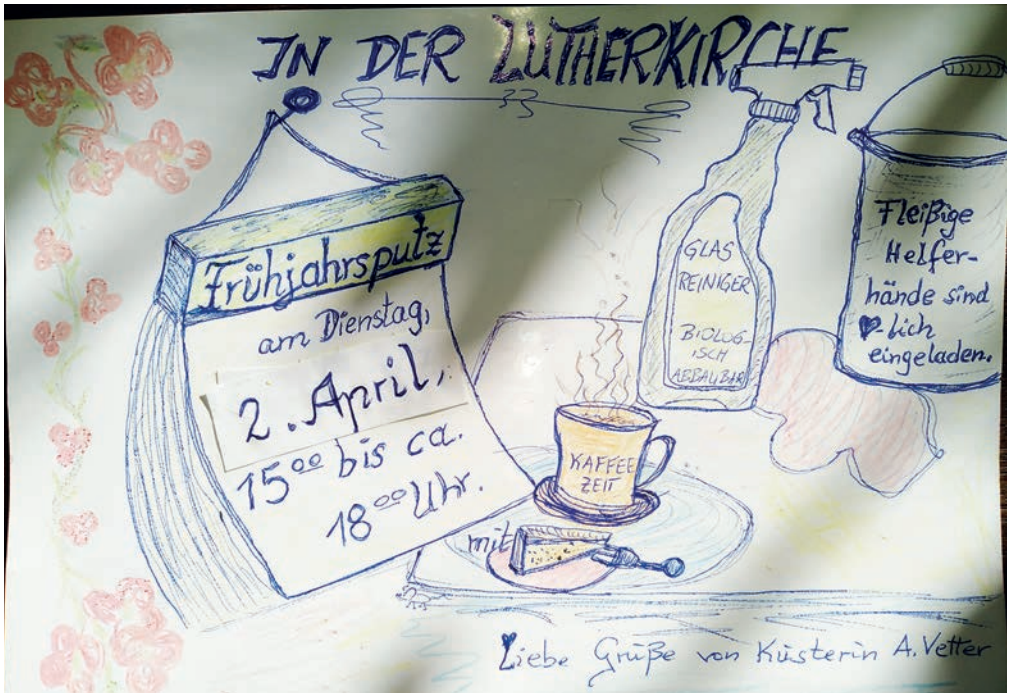 IN DER LUTHERKIRCHE
Frühjahrsputz
am Dienstag,
2. April,
15⁰⁰ bis ca.
18⁰⁰ Uhr.
GLAS
REINIGER
BIOLOG-
ISCH
ABBAUBAR
Fleißige
Helfer-
hände sind
♥-lich
eingeladen.
KAFFEE
ZEIT
mit
Liebe Grüße von Küsterin A. Vetter